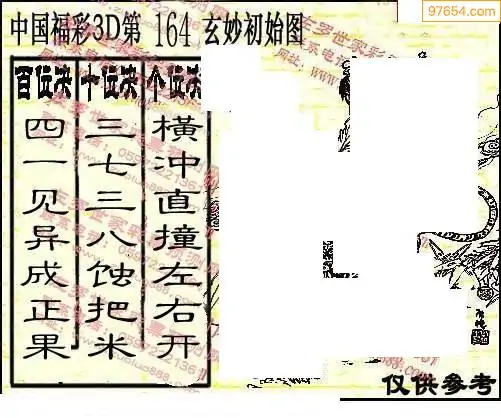 97654.com
中国福彩3D第 164 玄妙初始图
百位决
四一见异成正果
十位决
三七三八蚀把米
个位决
橫冲直撞左右开
仅供参考